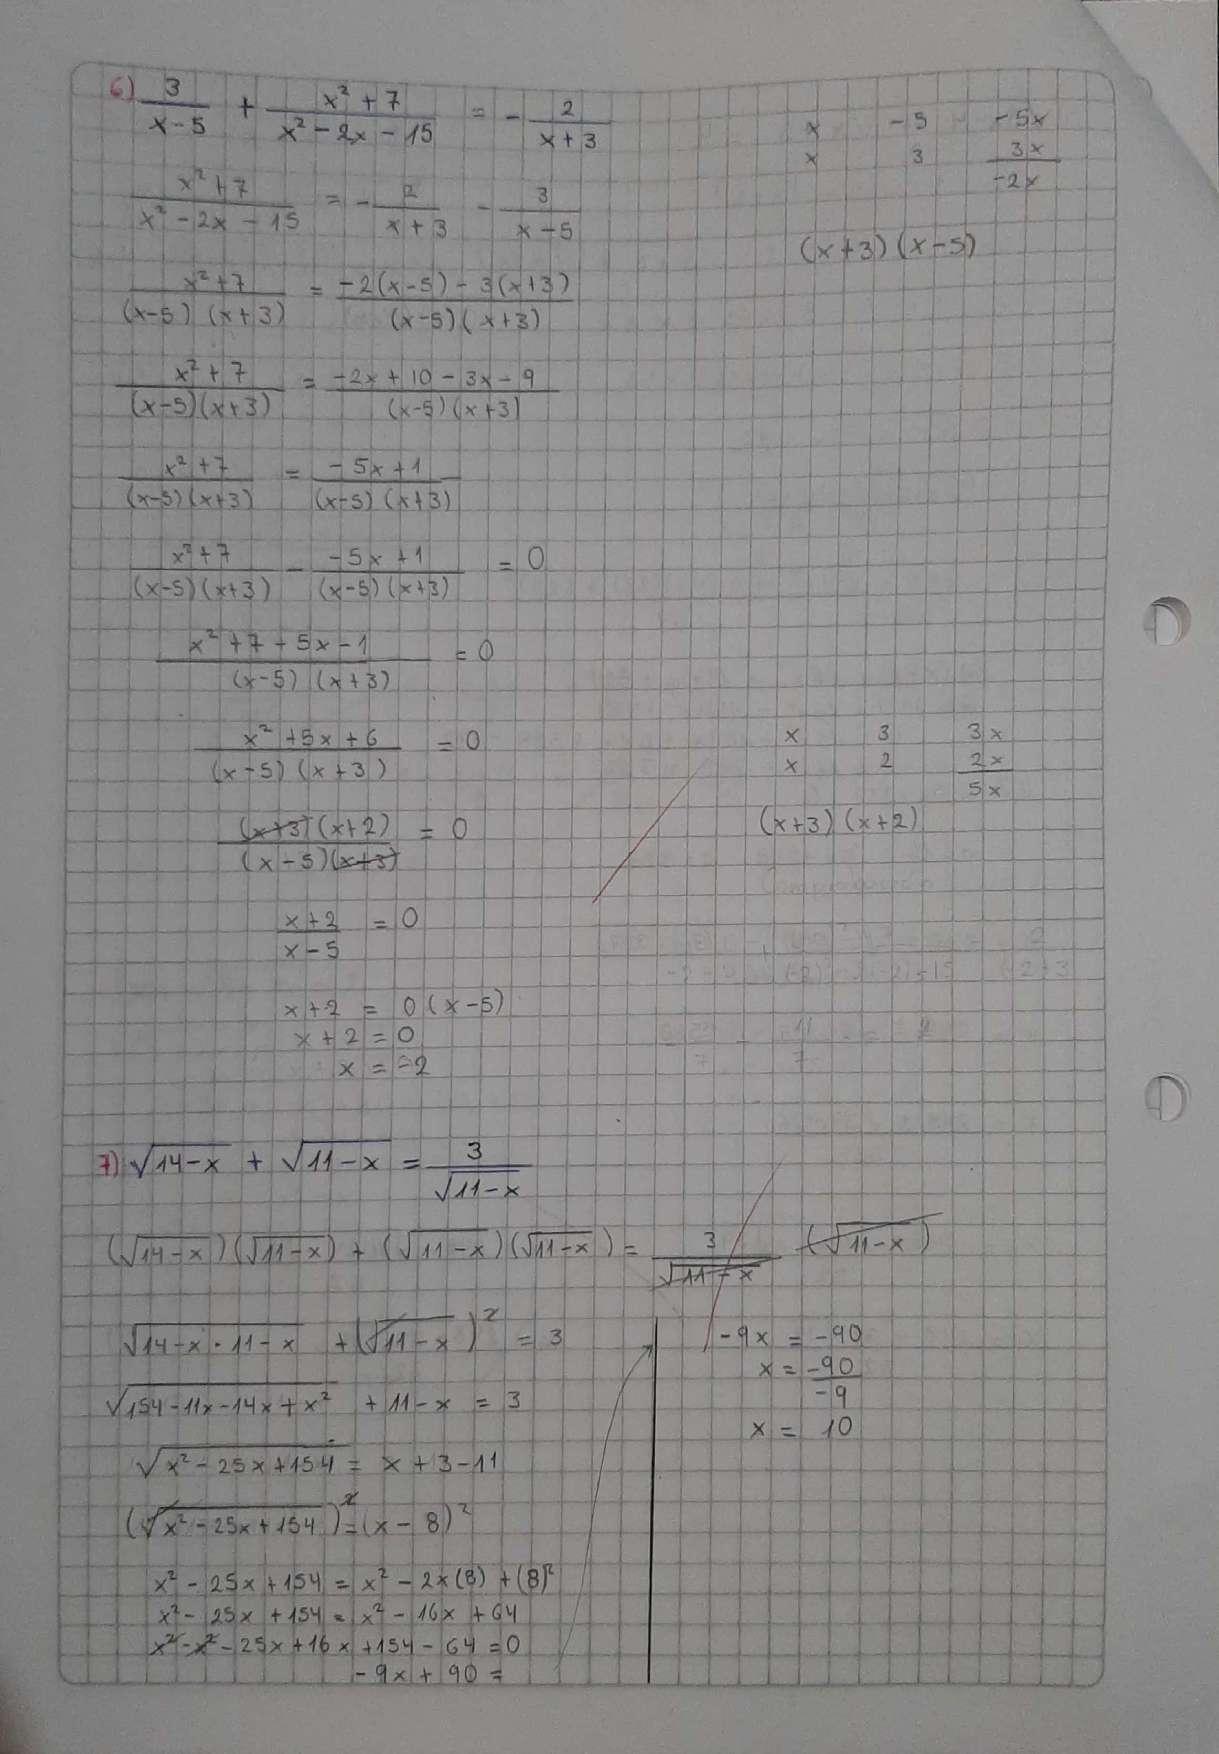 6) 3/(x-5) + (x²+7)/(x²-2x-15) = - 2/(x+3)
x -5 -5x
x 3 3x
-2x
(x+3)(x-5)
(x²+7)/(x²-2x-15) = - 2/(x+3) - 3/(x-5)
(x²+7)/((x-5)(x+3)) = (-2(x-5)-3(x+3))/((x-5)(x+3))
(x²+7)/((x-5)(x+3)) = (-2x+10-3x-9)/((x-5)(x+3))
(x²+7)/((x-5)(x+3)) = (-5x+1)/((x-5)(x+3))
(x²+7)/((x-5)(x+3)) - (-5x+1)/((x-5)(x+3)) = 0
(x²+7+5x-1)/((x-5)(x+3)) = 0
(x²+5x+6)/((x-5)(x+3)) = 0
x 3 3x
x 2 2x
5x
(x+3)(x+2)
((x+3)(x+2))/((x-5)(x+3)) = 0
(x+2)/(x-5) = 0
x+2 = 0(x-5)
x+2 = 0
x = -2
7) √(14-x) + √(11-x) = 3/√(11-x)
(√(14-x))(√(11-x)) + (√(11-x))(√(11-x)) = 3/√(11-x) (√(11-x))
√(14-x·11-x) + (√(11-x))² = 3
√(154-11x-14x+x²) + 11-x = 3
√(x²-25x+154) = x+3-11
(√(x²-25x+154))² = (x-8)²
x²-25x+154 = x²-2x(8)+(8)²
x²-25x+154 = x²-16x+64
x²-x²-25x+16x+154-64=0
-9x+90=
-9x = -90
x = -90/-9
x = 10